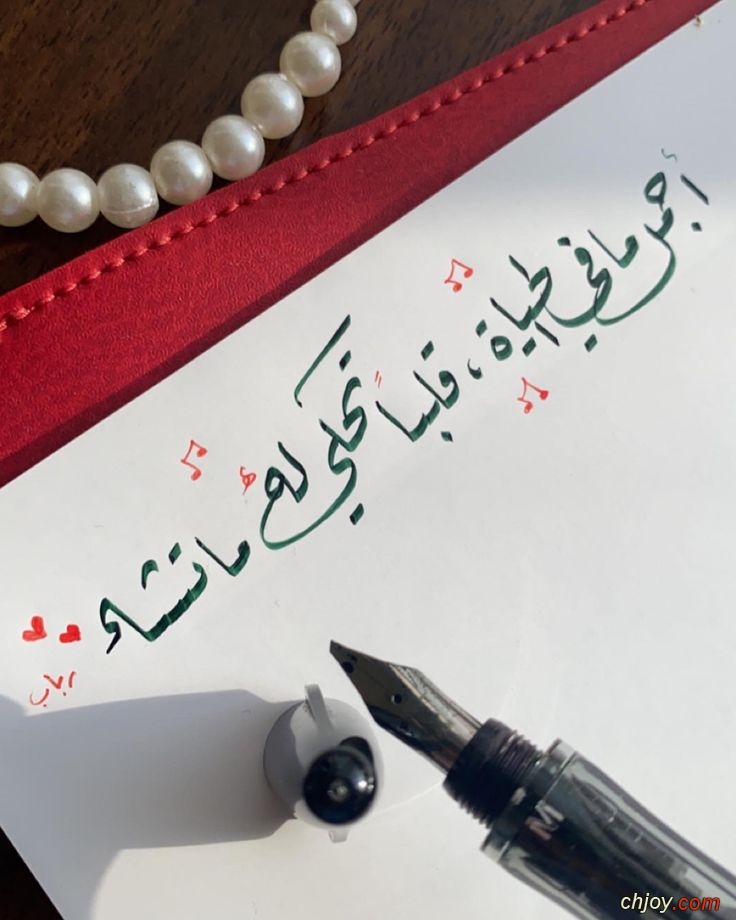 أجمل ما في الحياة، قلباً تحكي لهُ ما تشاء
رباب
M
chjoy.com